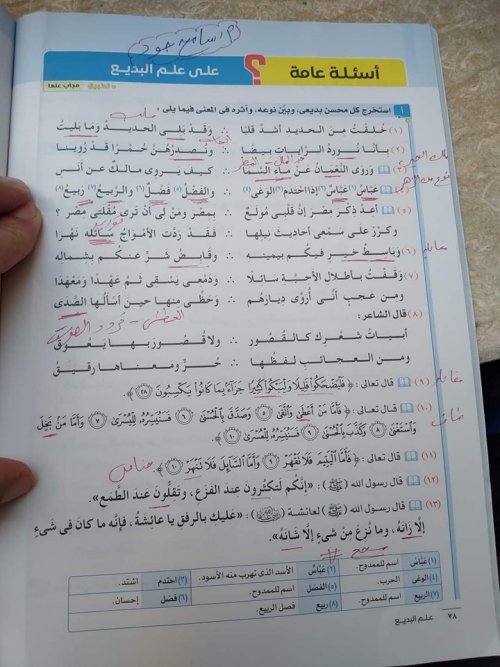 أسئلة عامة ؟ على علم البديع
• تطبيق مجاب عنها
أ استخرج كل محسن بديعى، وبيّن نوعه، وأثره فى المعنى فيما يلى :
(١) خُلقتُ مِن الحديدِ أشدَّ قلبًا ∴ وقد بَلىَ الحديدُ وما بليتُ
(٢) بأنّا نُوردُ الرّايات بيضًا ∴ ونُصدرُهُنَّ حُمْرًا قد رُوينا
(٣) وروى النُّعمانُ عَنْ ماءِ السّما ∴ كيف يروى مالكٌ عن أنَس
(٤) عَبّاسُ(١) عَبّاسٌ(٢) إذا احْتدَمَ(٣) الوَغى(٤) ∴ والفَضْلُ(٥) فضْلٌ(٦) والرَّبيعُ(٧) ربيعُ(٨)
(٥) أَعِدْ ذكرَ مصْرَ إنَّ قلبى مُولَعٌ ∴ بمصْرَ ومَنْ لى أنْ ترى مُقْلتِى مصْر ؟
وكرِّرْ على سَمعى أحاديثَ نيلِها ∴ فقد ردَّت الأمْواجُ سائلَه نَهْرا
(٦) وباسطُ خيرٍ فيكُم بيمينه ∴ وقابضُ شرٍّ عنكُم بشماله
(٧) وقفْتُ بأطْلالِ الأحبَّةِ سَائلًا ∴ ودَمْعى يَسْقى ثَمَّ عَهْدًا ومَعْهَدَا
ومن عجبٍ أنِّى أُرَوِّى ديارَهُم ∴ وحَظِّى منها حينَ أسألُها الصَّدَى
(٨) قال الشاعر :
أبياتُ شِعْرِكَ كالقُصُور ∴ ولا قُصُورَ بها يَعُوقْ
ومن العجائبِ لفظُها ∴ حُرٌّ ومَعناها رقيقْ
(٩) قال تعالى : ﴿ فَلْيَضْحَكُوا قَلِيلًا وَلْيَبْكُوا كَثِيرًا جَزَاءً بِمَا كَانُوا يَكْسِبُونَ ﴾
(١٠) قال تعالى : ﴿ فَأَمَّا مَنْ أَعْطَى وَاتَّقَى ٥ وَصَدَّقَ بِالْحُسْنَى ٦ فَسَنُيَسِّرُهُ لِلْيُسْرَى ٧ وَأَمَّا مَنْ بَخِلَ
وَاسْتَغْنَى ٨ وَكَذَّبَ بِالْحُسْنَى ٩ فَسَنُيَسِّرُهُ لِلْعُسْرَى ١٠ ﴾
(١١) قال تعالى : ﴿ فَأَمَّا الْيَتِيمَ فَلَا تَقْهَرْ ٩ وَأَمَّا السَّائِلَ فَلَا تَنْهَرْ ١٠ ﴾
(١٢) قال رسول الله (ﷺ) : «إنَّكُم لتَكثُرون عند الفزَع، وتقلُّون عند الطَّمَع».
(١٣) قال رسول الله (ﷺ) لعائشة : «عليك بالرفق يا عائشةُ، فإنَّه ما كان فى شىءٍ
إلَّا زانَهُ، وما نُزعَ مِنْ شىءٍ إلَّا شانَهُ».
(١) عَبَّاسُ اسم للممدوح. (٢) عَبَّاسٌ الأسد الذى تهرب منه الأسود. (٣) احتدم اشتد.
(٤) الوغى الحرب. (٥) الفضل اسم للممدوح. (٦) فضل إحسان.
(٧) الربيع اسم للممدوح. (٨) ربيع فصل الربيع.
٧٨ علم البديع